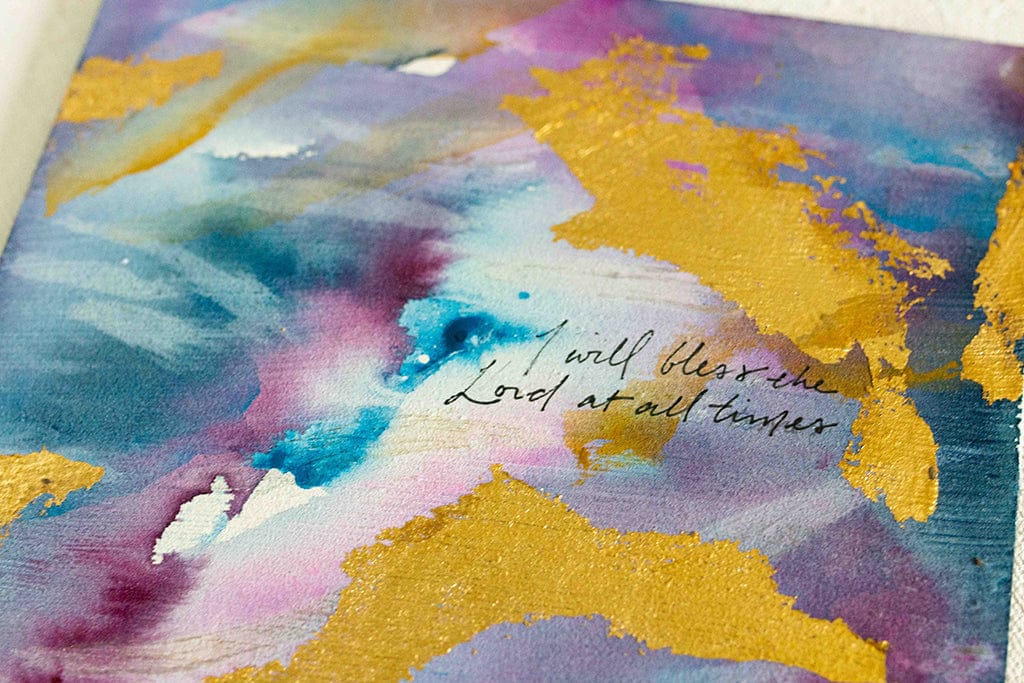 I will bless the
Lord at all times